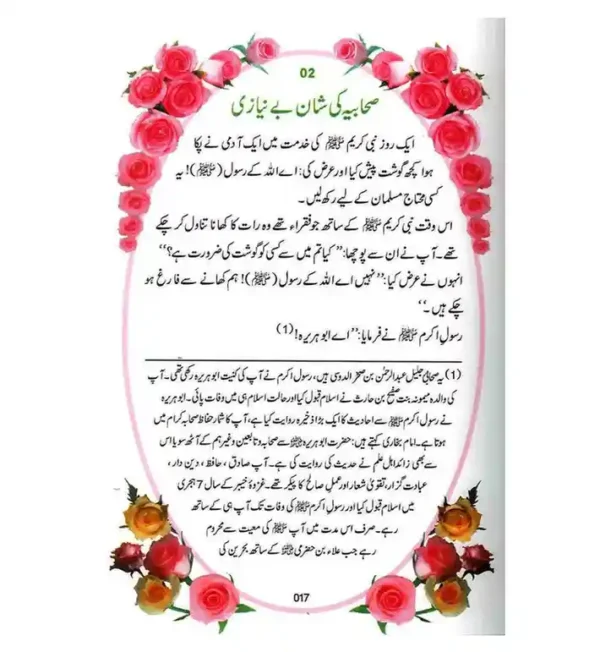 02
صحابیہ کی شان بے نیازی
ایک روز نبی کریم ﷺ کی خدمت میں ایک آدمی نے پکا
ہوا کچھ گوشت پیش کیا اور عرض کی: اے اللہ کے رسول (ﷺ)! یہ
کسی محتاج مسلمان کے لیے رکھ لیں۔
اس وقت نبی کریم ﷺ کے ساتھ جو فقراء تھے وہ رات کا کھانا تناول کر چکے
تھے۔ آپ نے ان سے پوچھا: ”کیا تم میں سے کسی کو گوشت کی ضرورت ہے؟“
انہوں نے عرض کیا: ”نہیں اے اللہ کے رسول (ﷺ)! ہم کھانے سے فارغ ہو
چکے ہیں۔“
رسول اکرم ﷺ نے فرمایا: ”اے ابو ہریرہ! (1)
(1) یہ صحابی جلیل عبدالرحمٰن بن صخر الدوسی ہیں، رسول اکرم نے آپ کی کنیت ابو ہریرہ رکھی تھی۔ آپ
کی والدہ میمونہ بنت صفیح بن حارث نے اسلام قبول کیا اور حالت اسلام ہی میں وفات پائی۔ ابو ہریرہ
نے رسول اکرم ﷺ سے احادیث کا ایک بڑا ذخیرہ روایت کیا ہے، آپ کا شمار حفاظ صحابہ کرام میں
ہوتا ہے۔ امام بخاری کہتے ہیں: حضرت ابو ہریرہ سے صحابہ و تابعین وغیرہم کے آٹھ سو یا اس
سے بھی زائد اہل علم نے حدیث کی روایت کی ہے۔ آپ صادق، حافظ، دین دار،
عبادت گزار، تقویٰ شعار اور عمل صالح کا پیکر تھے۔ غزوۂ خیبر کے سال 7 ہجری
میں اسلام قبول کیا اور رسول اکرم ﷺ کی وفات تک آپ ہی کے ساتھ
رہے۔ صرف اس مدت میں آپ ﷺ کی معیت سے محروم
رہے جب علاء بن حضرمی کے ساتھ بحرین کی
017